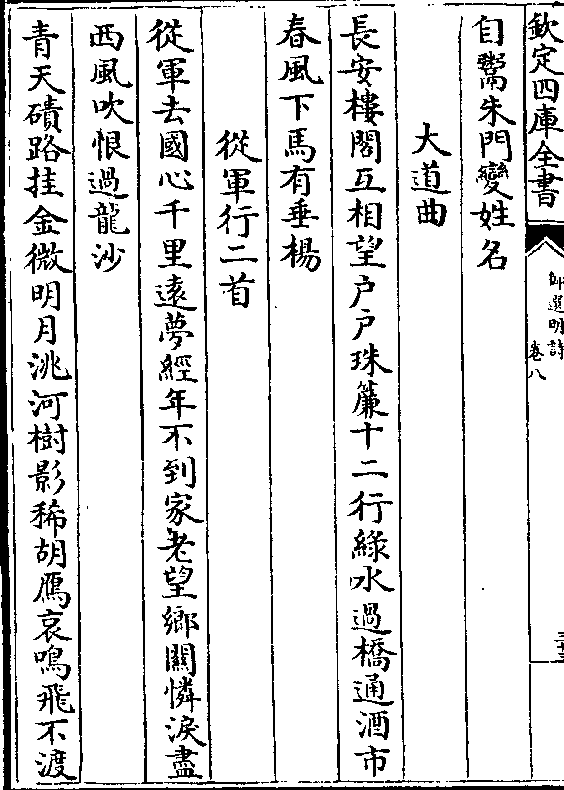 欽定四庫全書
御選明詩
卷八
自鬻朱門變姓名
大道曲
長安樓閣互相望户户珠簾十二行綠水過橋通酒市
春風下馬有垂楊
從軍行二首
從軍去國心千里遠夢經年不到家老望鄉關憐淚盡
西風吹恨過龍沙
青天磧路挂金微明月洮河樹影稀胡鴈哀鳴飛不渡